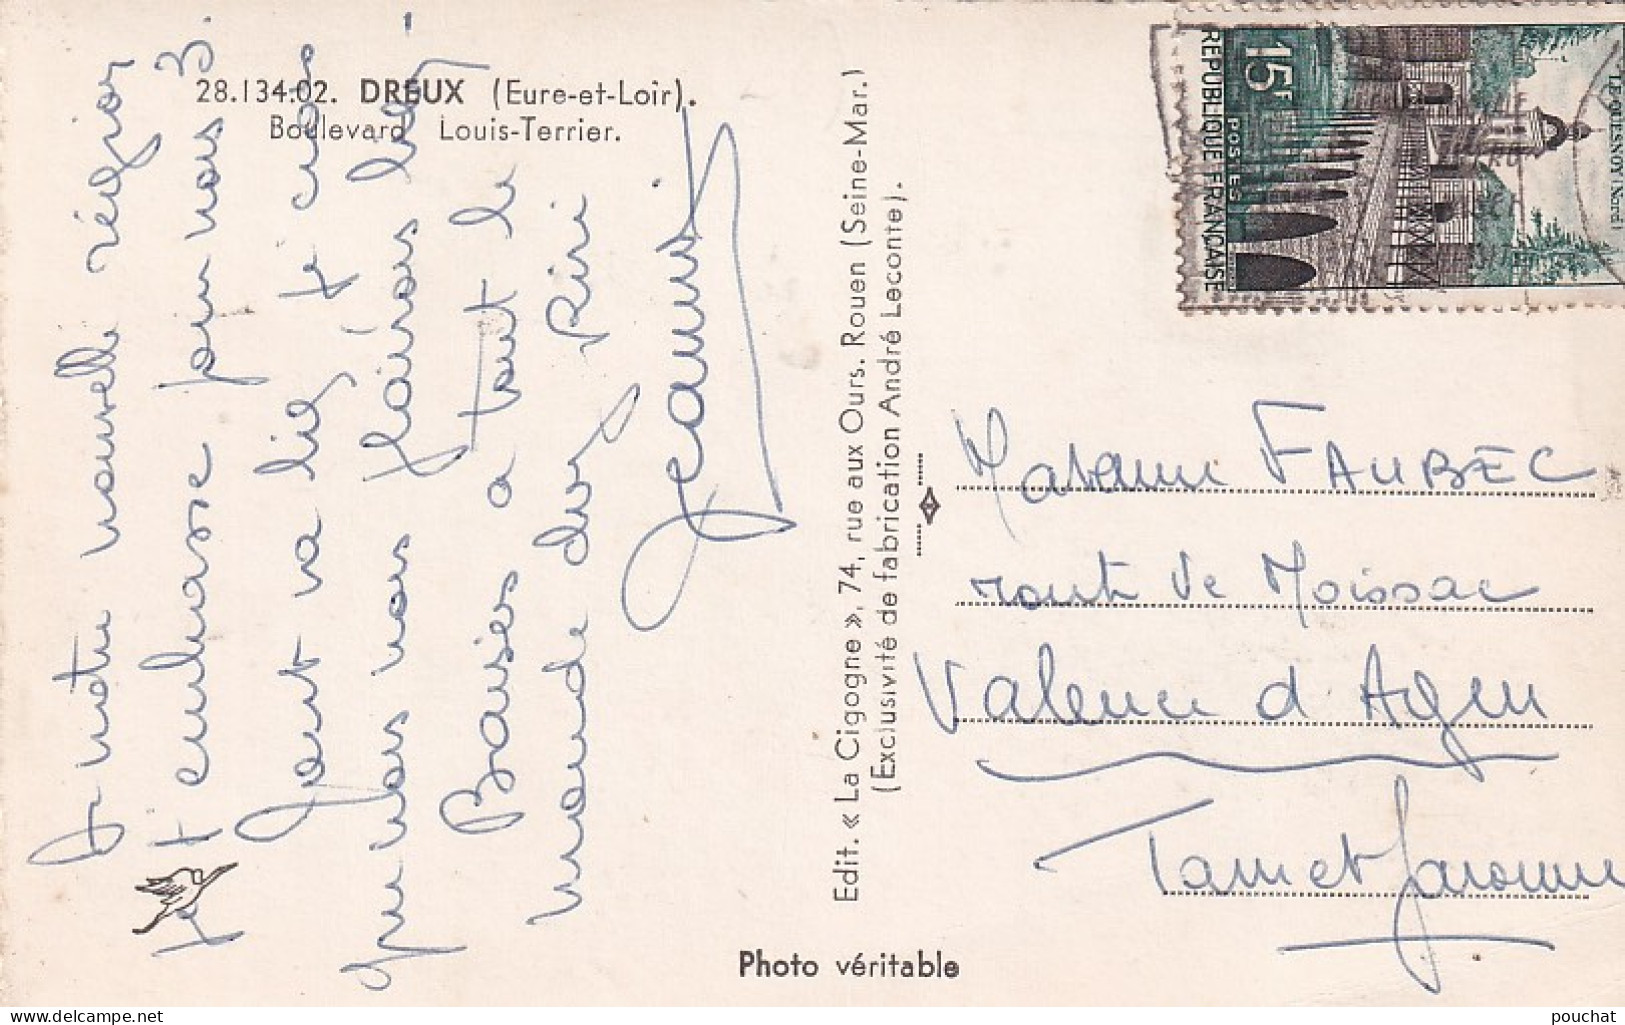 28.134.02. DREUX (Eure-et-Loir).
Boulevard Louis-Terrier.
notre nouvelle région
t'embrasse pour nous 3.
Tout va
que nous nous
Baisers a tout le
monde
Riri
Edit. « La Cigogne », 74, rue aux Ours. Rouen (Seine-Mar.)
(Exclusivité de fabrication André Leconte).
15F
POSTES
REPUBLIQUE FRANÇAISE
LE QUESNOY (Nord)
Madame FAUBEC
route de Moissac
Valence d'Agen
Tarn et Garonne
Photo véritable
pouchat